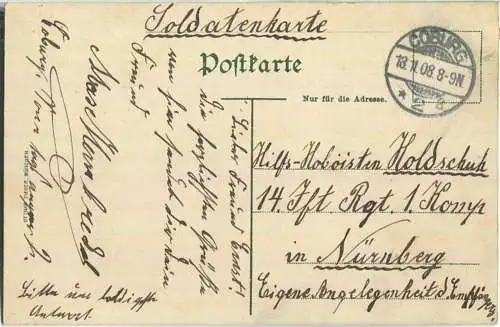 Soldatenkarte
Postkarte
Nur für die Adresse.
COBURG
13.11.08.8-9N
Hilfs-Hoboisten Holdschuh
14. Jft Rgt. 1. Komp
in Nürnberg
Eigene Angelegenheit d. Empfäng
Lieber Freund Ernst!
Die herzlichsten Grüße
von hier sendet dir dein
Freund
Coburg,
Bitte um baldigste
Antwort